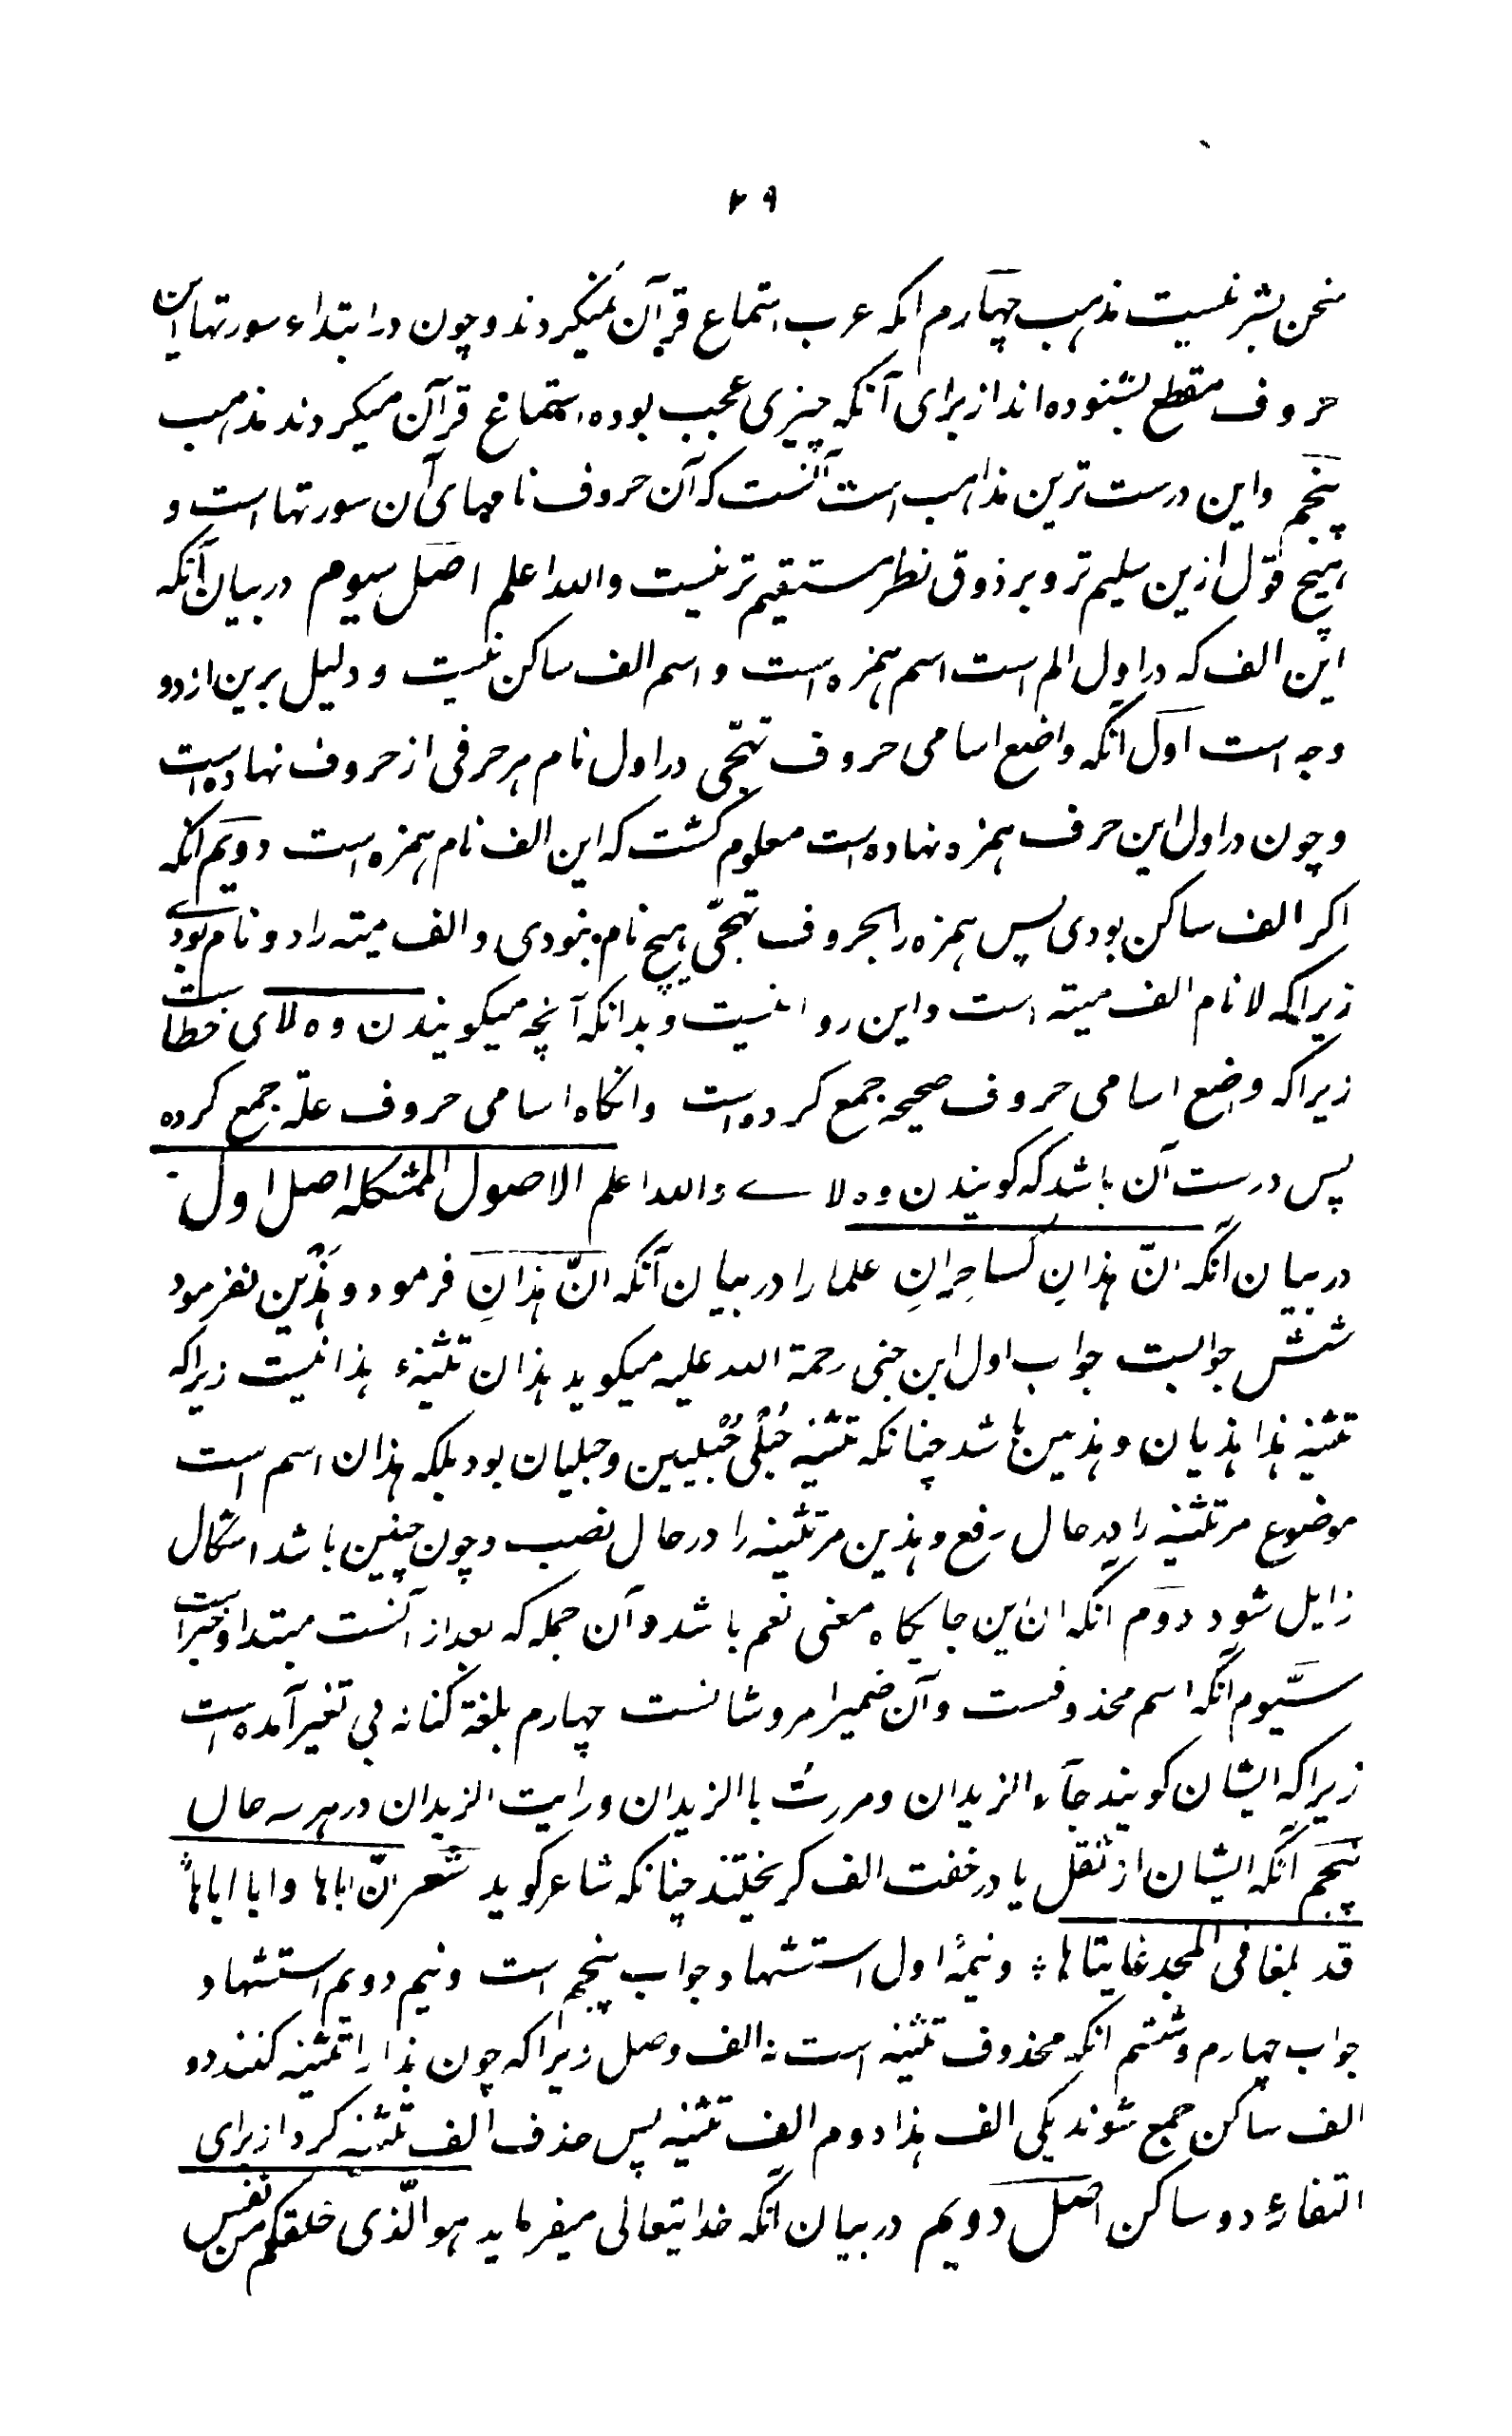 ۲۹
سخن بشر نیست مذهب چهارم انکه عرب استماع قرآن نمیکردند و چون در ابتداء سورتها این
حروف مقطع بشنوده‌اند از برای آنکه چیزی عجب بوده استماع قرآن میکردند مذهب
پنجم و این درست ترین مذاهب است آنست که آن حروف نامهای آن سورتها است و
هیچ قول ازین سلیم تر و بر ذوق نظر مستقیم تر نیست والله اعلم اصل سیوم در بیان آنکه
این الف که در اول الم است اسم همزه است و اسم الف ساکن نیست و دلیل برین از دو
وجه است اول آنکه واضع اسامی حروف تهجّی در اول نام هر حرفی از حروف نهاده است
و چون در اول این حرف همزه نهاده است معلوم کشت که این الف نام همزه است دویم انکه
اکر الف ساکن بودی پس همزه را بحروف تهجّی هیچ نام نبودی و الف میته را دو نام بودے
زیراکه لا نام الف میته است و این روا نیست و بدانکه آنچه میکویند ن و ه لا ی خطا است
زیراکه وضع اسامی حروف صحیحه جمع کرده است وانکاه اسامی حروف علة جمع کرده
پس درست آن باشد که کویند ن و ه لا ے والله اعلم الاصول المشکله اصل اول
در بیان انکه انّ هذانِ لساحرانِ علما را در بیان آنکه انّ هذانِ فرمود و هٰذَین نفرمود
شش جوابست جواب اول ابن جنی رحمة الله علیه میکوید هذان تثنیهٔ هذا نیست زیراکه
تثنیه هذا هذیان و هذیین باشد چنانکه تثنیه حُبلٰی حُبلیین و حبلیان بود بلکه هذان اسم است
موضوع مر تثنیه را در حال رفع و هذین مر تثنیه را در حال نصب و چون چنین باشد اشکال
زایل شود دوم انکه ان این جایکاه معنی نعم باشد و آن جمله که بعد از آنست مبتدا و خبر است
سیّوم انکه اسم محذوفست و آن ضمیر امر و شانست چهارم بلغة کنانه بی تغیر آمده است
زیراکه ایشان کویند جآء الزیدان و مررت باالزیدان و رایت الزیدان در هر سه حال
پنجم انکه ایشان از ثقل یا در خفت الف کریختند چنانکه شاعر کوید شعر انّ اباها و ابا اباها
قد بلغا فی المجد غایتاها و نیمهٔ اول استشهاد جواب پنجم است و نیم دویم استشهاد
جواب چهارم و ششم انکه محذوف تثنیه است نه الف وصل زیراکه چون هذا را تثنیه کنند دو
الف ساکن جمع شوند یکی الف هذا دوم الف تثنیه پس حذف الف تثنیه کرد از برای
التقاء دو ساکن اصل دویم در بیان انکه خدایتعالی میفرماید هو الّذی خلقکم من نفس